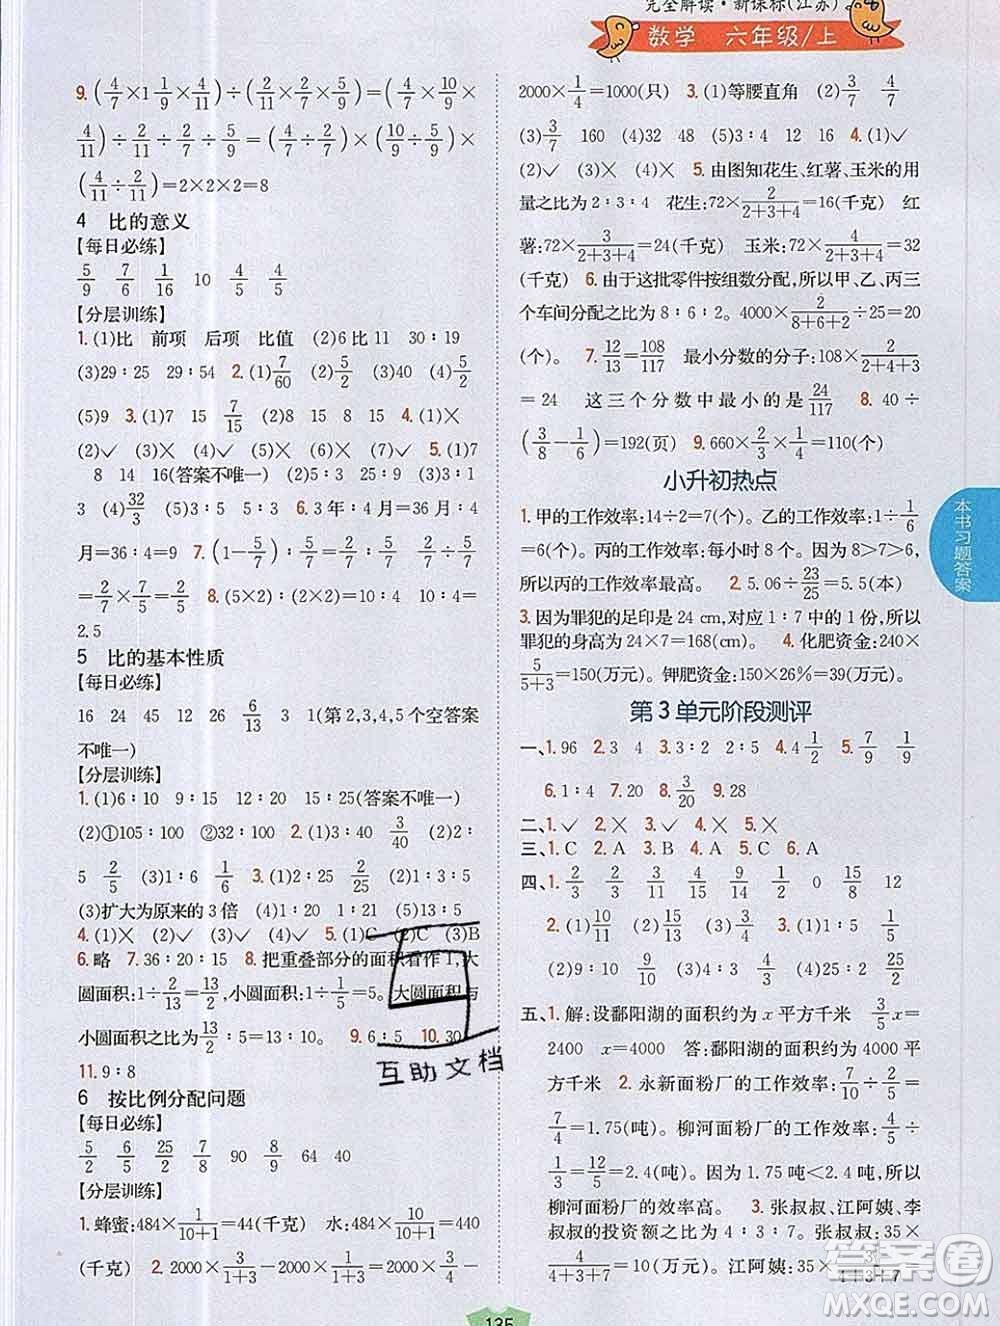 完全解读·新课标(江苏)
数学 六年级/上
9. (4/7×1 1/9×4/11)÷(2/7×2/7×5/9)=(4/7×10/9×
4/11)÷2/11÷2/7÷5/9=(4/7÷2/7)×(10/9÷5/9)×
(4/11÷2/11)=2×2×2=8
4 比的意义
【每日必练】
5/9 7/6 1/16 10 4/5 4/5
【分层训练】
1. (1)比 前项 后项 比值 (2)6比11 30∶19
(3)29∶25 29∶54 2. (1)7/60 (2)5/2 (3)40 (4)5/2
(5)9 3. (1)7 15 7/15 (2)8 15 8 15 4. (1)×
(2)√ (3)× (4)√ (5)× (6)√ 5. (1)7
8 14 16(答案不唯一) (2)5∶3 25∶9 (3)3∶1
3 (4)32/3 (5)3∶5 5∶3 6. 3年∶4月=36月∶4
月=36∶4=9 7. (1-5/7)∶5/7=2/7∶5/7=2/7÷5/7
=2/7×7/5=2/5 8. (5×2)∶(2×2)=10∶4=10÷4=
2.5
5 比的基本性质
【每日必练】
16 24 45 12 26 6/13 3 1(第2,3,4,5个空答案
不唯一)
【分层训练】
1. (1)6∶10 9∶15 12∶20 15∶25(答案不唯一)
(2)①105∶100 ②32∶100 2. (1)3∶40 3/40 (2)2∶
5 2/5 (3)1∶6 1/6 (4)5∶2 5/2 3. (1)5 (2)8
(3)扩大为原来的3倍 (4)12 (5)13∶5
4. (1)× (2)√ (3)× (4)√ 5. (1)C (2)C (3)B
6. 略 7. 36∶20∶15 8. 把重叠部分的面积看作1,大
圆面积:1÷2/13=13/2,小圆面积:1÷1/5=5。大圆面积与
小圆面积之比为13/2∶5=13∶10 9. 6∶5 10. 30
11. 9∶8
6 按比例分配问题
【每日必练】
5/2 6/5 25/2 7/8 90 64/9 30 8/9
【分层训练】
1. 蜂蜜:484×1/(10+1)=44(千克) 水:484×10/(10+1)=440
(千克) 2. 2000×3/(1+3)-2000×1/(1+3)=2000×2/4-
2000×1/4=1000(只) 3. (1)等腰直角 (2)3/7 4/7
(3)3/7 160 (4)32 48 (5)3∶4 12 16 4. (1)√
(2)× (3)× (4)× 5. 由图知花生、红薯、玉米的用
量之比为2∶3∶4 花生:72×2/(2+3+4)=16(千克) 红
薯:72×3/(2+3+4)=24(千克) 玉米:72×4/(2+3+4)=32
(千克) 6. 由于这批零件按组数分配,所以甲、乙、丙三
个车间分配之比为8∶6∶2。4000×2/(8+6+2)÷25=20
(个)。 7. 12/13=108/117 最小分数的分子:108×2/(2+4+3)
=24 这三个分数中最小的是24/117 8. 40÷
(3/8-1/6)=192(页) 9. 660×2/3×1/4=110(个)
小升初热点
1. 甲的工作效率:14÷2=7(个)。乙的工作效率:1÷1/6
=6(个)。丙的工作效率:每小时8个。因为8>7>6,
所以丙的工作效率最高。 2. 5.06÷23/25=5.5(本)
3. 因为罪犯的足印是24 cm,占1∶7中的1份,所以
罪犯的身高为24×7=168(cm)。 4. 化肥资金:240×
5/(5+3)=150(万元)。钾肥资金:150×26%=39(万元)。
第3单元阶段测评
一、1. 96 2. 3 4 3. 3∶2 2∶5 4. 4 1/2 5. 7/9 1/9
6. 1∶4 7. 20 8. 3/20 9. 28
二、1. √ 2. × 3. × 4. √ 5. ×
三、1. C 2. A 3. B 4. B 5. C 6. A
四、1. 2/3 2/3 3/11 4/9 1/2 0 15/8 12
2. (1)10/11 (2)15/13 (3)2/3 3. (1)1∶4
(2)9∶10 (3)50∶3 4. (1)9/10 (2)28 (3)5/8
五、1. 解:设鄱阳湖的面积约为x平方千米 3/5x=
2400 x=4000 答:鄱阳湖的面积约为4000平
方千米 2. 永新面粉厂的工作效率:7/10÷2/5=
7/4=1.75(吨)。柳河面粉厂的工作效率:4/5÷
1/3=12/5=2.4(吨)。因为1.75吨<2.4吨,所以
柳河面粉厂的效率高。 3. 张叔叔、江阿姨、李
叔叔的投资额之比为4∶3∶7。张叔叔:35×
4/(4+3+7)=10(万元)。江阿姨:35×3/(4+3+7)
本书习题答案
互助文档
答案圈
MXQE.COM
135